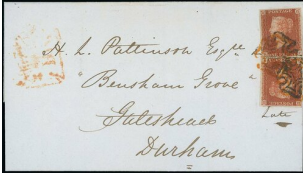 H. L. Pattinson Esqre
"Bensham Grove"
Gateshead
Durham
Late